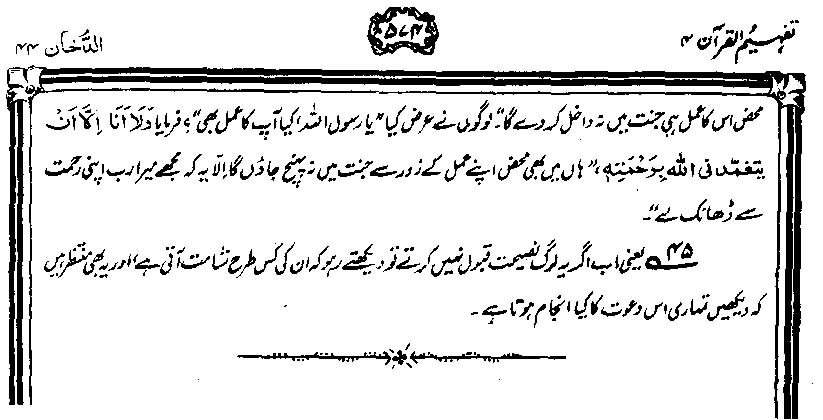 تفہیم القرآن ۴ ۵۷۴ الدُّخان ۴۴
محض اس کا عمل ہی جنت میں نہ داخل کر دے گا"۔ لوگوں نے عرض کیا "یا رسول اللہ! کیا آپ کا عمل بھی"؟ فرمایا وَلَا اَنَا اِلَّا اَنْ
یتغمّدنی اللہ بِرَحْمَتِہٖ، "ہاں میں بھی محض اپنے عمل کے زور سے جنت میں نہ پہنچ جاؤں گا اِلّا یہ کہ مجھے میرا رب اپنی رحمت
سے ڈھانک لے"۔
۴۵ یعنی اب اگر یہ لوگ نصیحت قبول نہیں کرتے تو دیکھتے رہو کہ ان کی کس طرح شامت آتی ہے، اور یہ بھی منتظر ہیں
کہ دیکھیں تمہاری اس دعوت کا کیا انجام ہوتا ہے۔